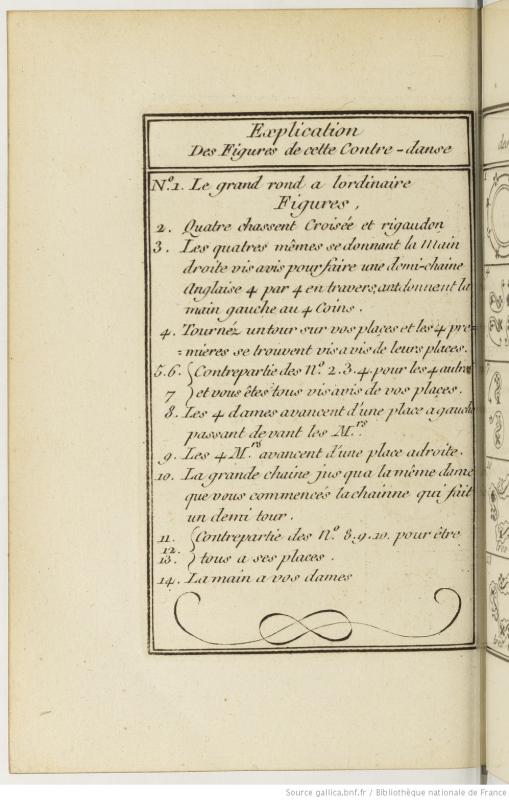 Explication
Des Figures de cette Contre-danse
N.º 1. Le grand rond a lordinaire
Figures,
2. Quatre chassent Croisée et rigaudon
3. Les quatres mêmes se donnant la Main
droite vis avis pour faire une demi-chaine
Anglaise 4 par 4 en travers, donnent la
main gauche au 4 Coins.
4. Tournez un tour sur vos places et les 4 pre=
=mieres se trouvent vis a vis de leurs places.
5.6. { Contrepartie des N.º 2.3.4. pour les 4 autres
7 } et vous êtes tous vis avis de vos places.
8. Les 4 dames avancent d'une place a gauche
passant devant les M.rs
9. Les 4 M.rs avancent d'une place a droite.
10. La grande chaine jus qua la même dame
que vous commencés la chainne qui fait
un demi tour.
11. { Contrepartie des N.º 8.9.10. pour être
12.
13. } tous a ses places.
14. La main a vos dames
Source gallica.bnf.fr / Bibliothèque nationale de France